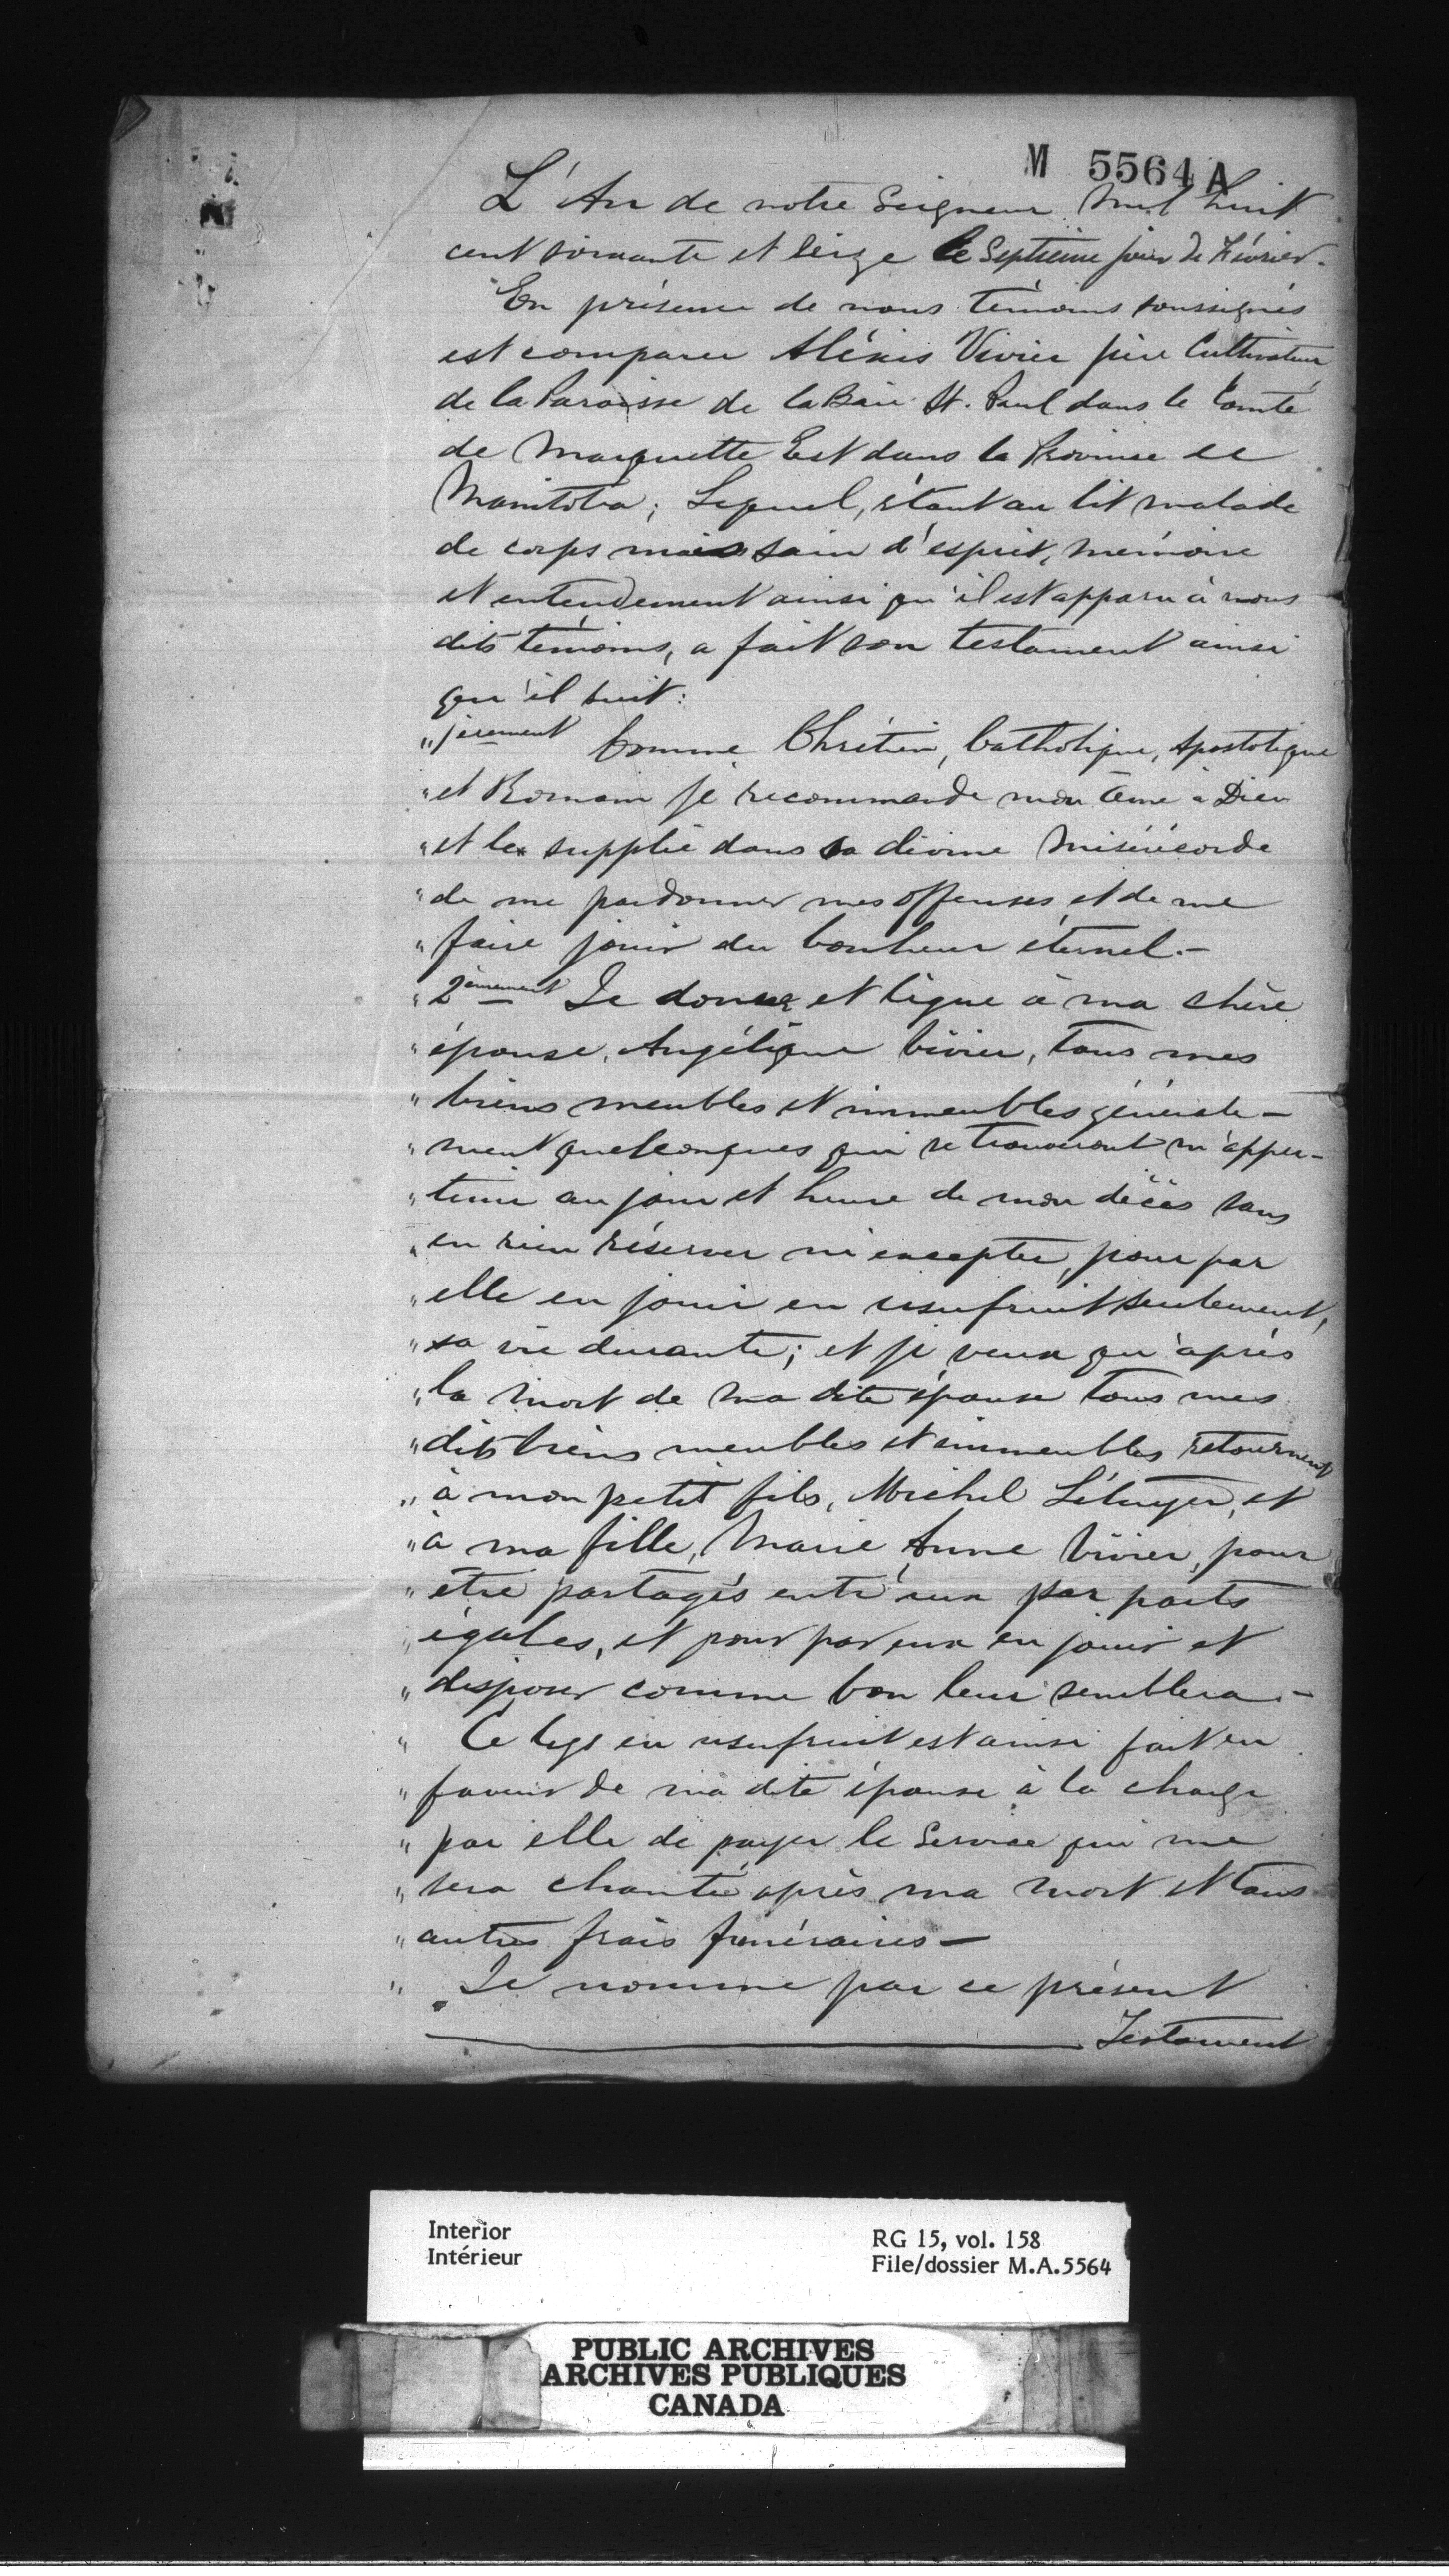 M 5564 A
L'An de notre Seigneur Mil huit
cent soixante et seize le Septième jour de Février.
En présence de nous témoins soussignés
est comparu Aléxis Vivier père Cultivateur
de la Paroisse de la Baie St. Paul dans le Comté
de Marquette Est dans la Province de
Manitoba; Lequel, étant au lit malade
de corps mais sain d'esprit, mémoire
et entendement ainsi qu'il est apparu à nous
dits témoins, a fait son testament ainsi
qu'il suit:
" 1èrement Comme Chrétien, Catholique, Apostolique
" et Romain je recommande mon âme à Dieu
" et le supplie dans sa divine Miséricorde
" de me pardonner mes offenses et de me
" faire jouir du bonheur éternel.—
" 2èmement Je donne et lègue à ma chère
" épouse, Angélique Vivier, tous mes
" biens meubles et immeubles générale-
" ment quelconques qui se trouveront m'appar-
" tenir au jour et heure de mon décès sans
" en rien réserver ni excepter, pour par
" elle en jouir en usufruit seulement,
" sa vie durante; et je veux qu'après
" la mort de ma dite épouse tous mes
" dits biens meubles et immeubles retournent
" à mon petit fils, Michel et
" à ma fille, Marie Anne Vivier, pour
" être partagés entr'eux par parts
" égales, et pour par eux en jouir et
" disposer comme bon leur semblera.—
" Ce legs en usufruit est ainsi fait en
" faveur de ma dite épouse à la charge
" par elle de payer le Service qui me
" sera chanté après ma mort et tous
" autres frais funéraires—
" Je nomme par ce présent
Testament
Interior
Intérieur
RG 15, vol. 158
File/dossier M.A.5564
PUBLIC ARCHIVES
ARCHIVES PUBLIQUES
CANADA